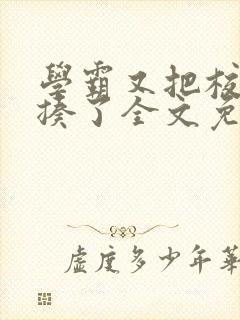 學霸又把校
揍了全文免
虛度多少年華